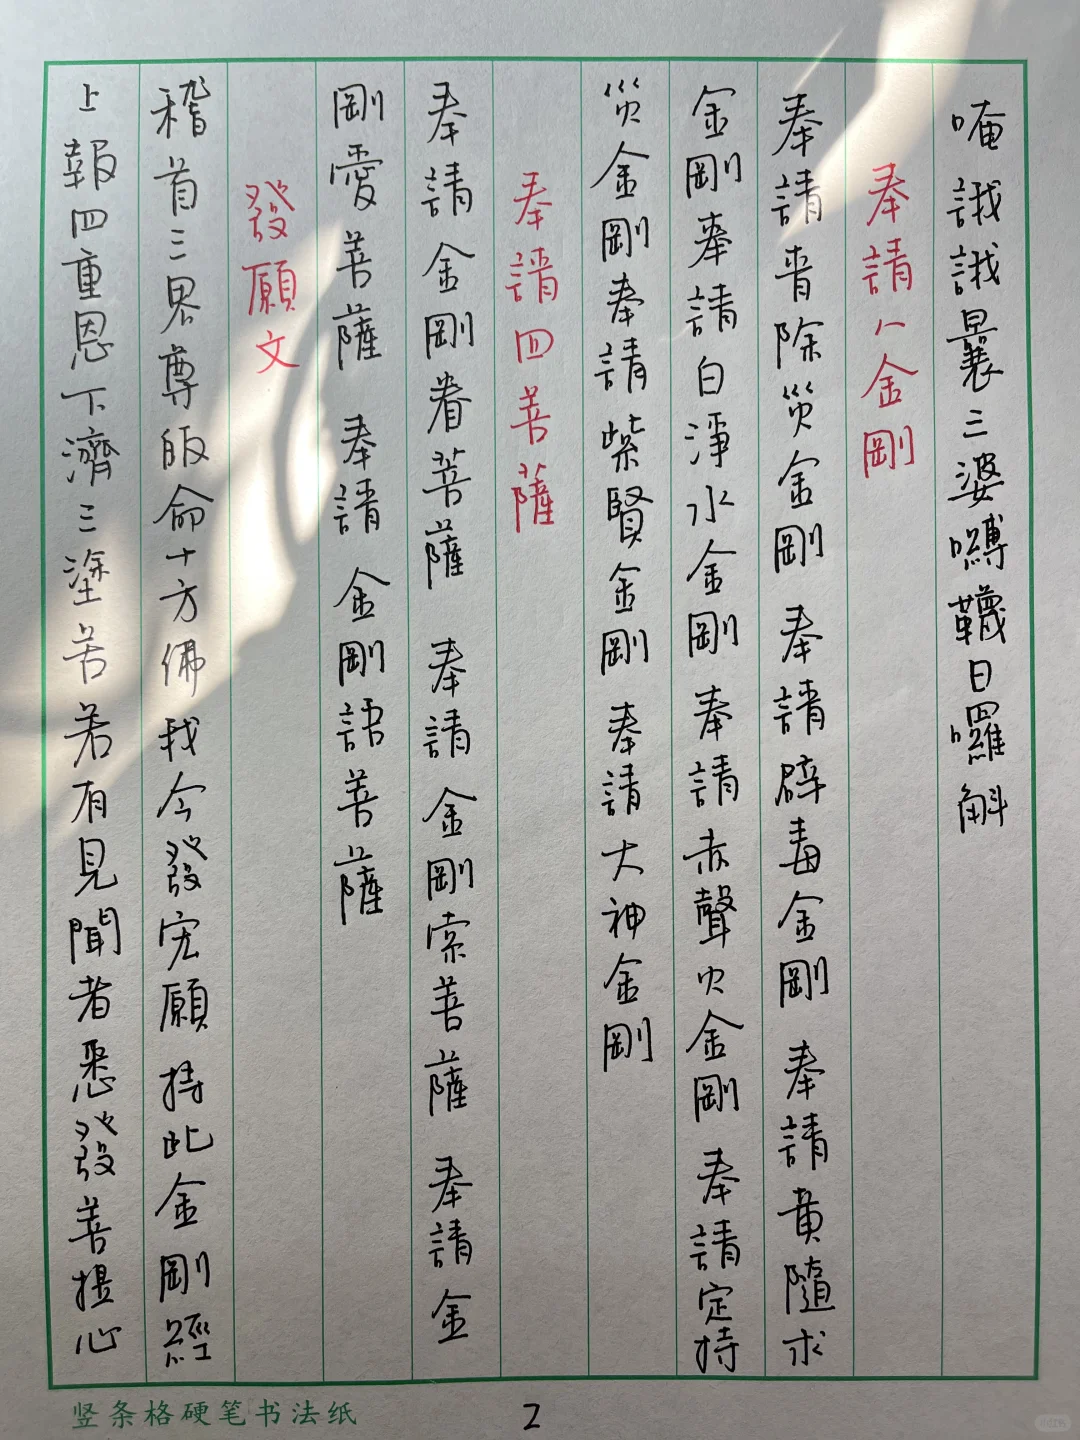 唵誐誐曩三婆嚩韈日囉斛
奉請八金剛
奉請青除災金剛 奉請辟毒金剛 奉請黄隨求
金剛奉請白淨水金剛 奉請赤聲火金剛 奉請定持
災金剛奉請紫賢金剛 奉請大神金剛
奉請四菩薩
奉請金剛眷菩薩 奉請金剛索菩薩 奉請金
剛愛菩薩 奉請金剛語菩薩
發願文
稽首三界尊皈命十方佛我今發宏願持此金剛經
上報四重恩下濟三塗苦若有見聞者悉發菩提心
竖条格硬笔书法纸
2
小红书